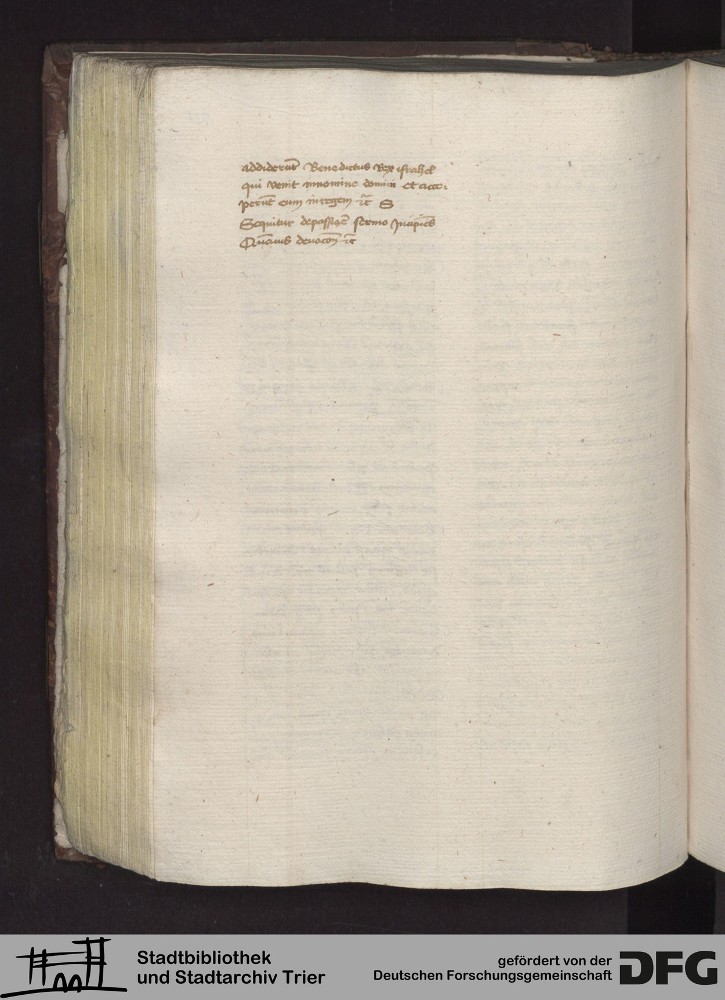 addiderūt Benedictus Rex israhel
qui venit innomine domini Et acce-
perūt eum in regem ⁊c̄ S
Sequitur depassiōe sermo Incipiēs
Qu̅auis deuocōi ⁊c̄
Stadtbibliothek
und Stadtarchiv Trier
gefördert von der
Deutschen Forschungsgemeinschaft
DFG